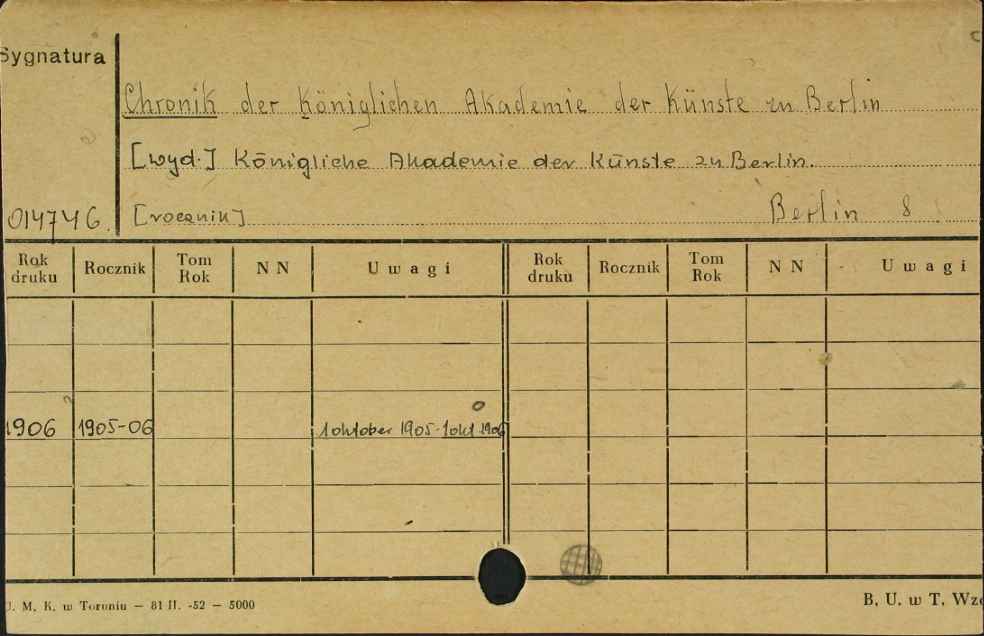 Sygnatura
Chronik der Königlichen Akademie der Künste zu Berlin
[wyd.] Königliche Akademie der Künste zu Berlin.
014746. [rocznik] Berlin 8
Rok druku Rocznik Tom Rok NN Uwagi Rok druku Rocznik Tom Rok NN Uwagi
1906 1905-06 1 oktober 1905-1 okt 1906
U. M. K. w Toruniu — 81 II. -52 — 5000 B. U. w T. Wzó